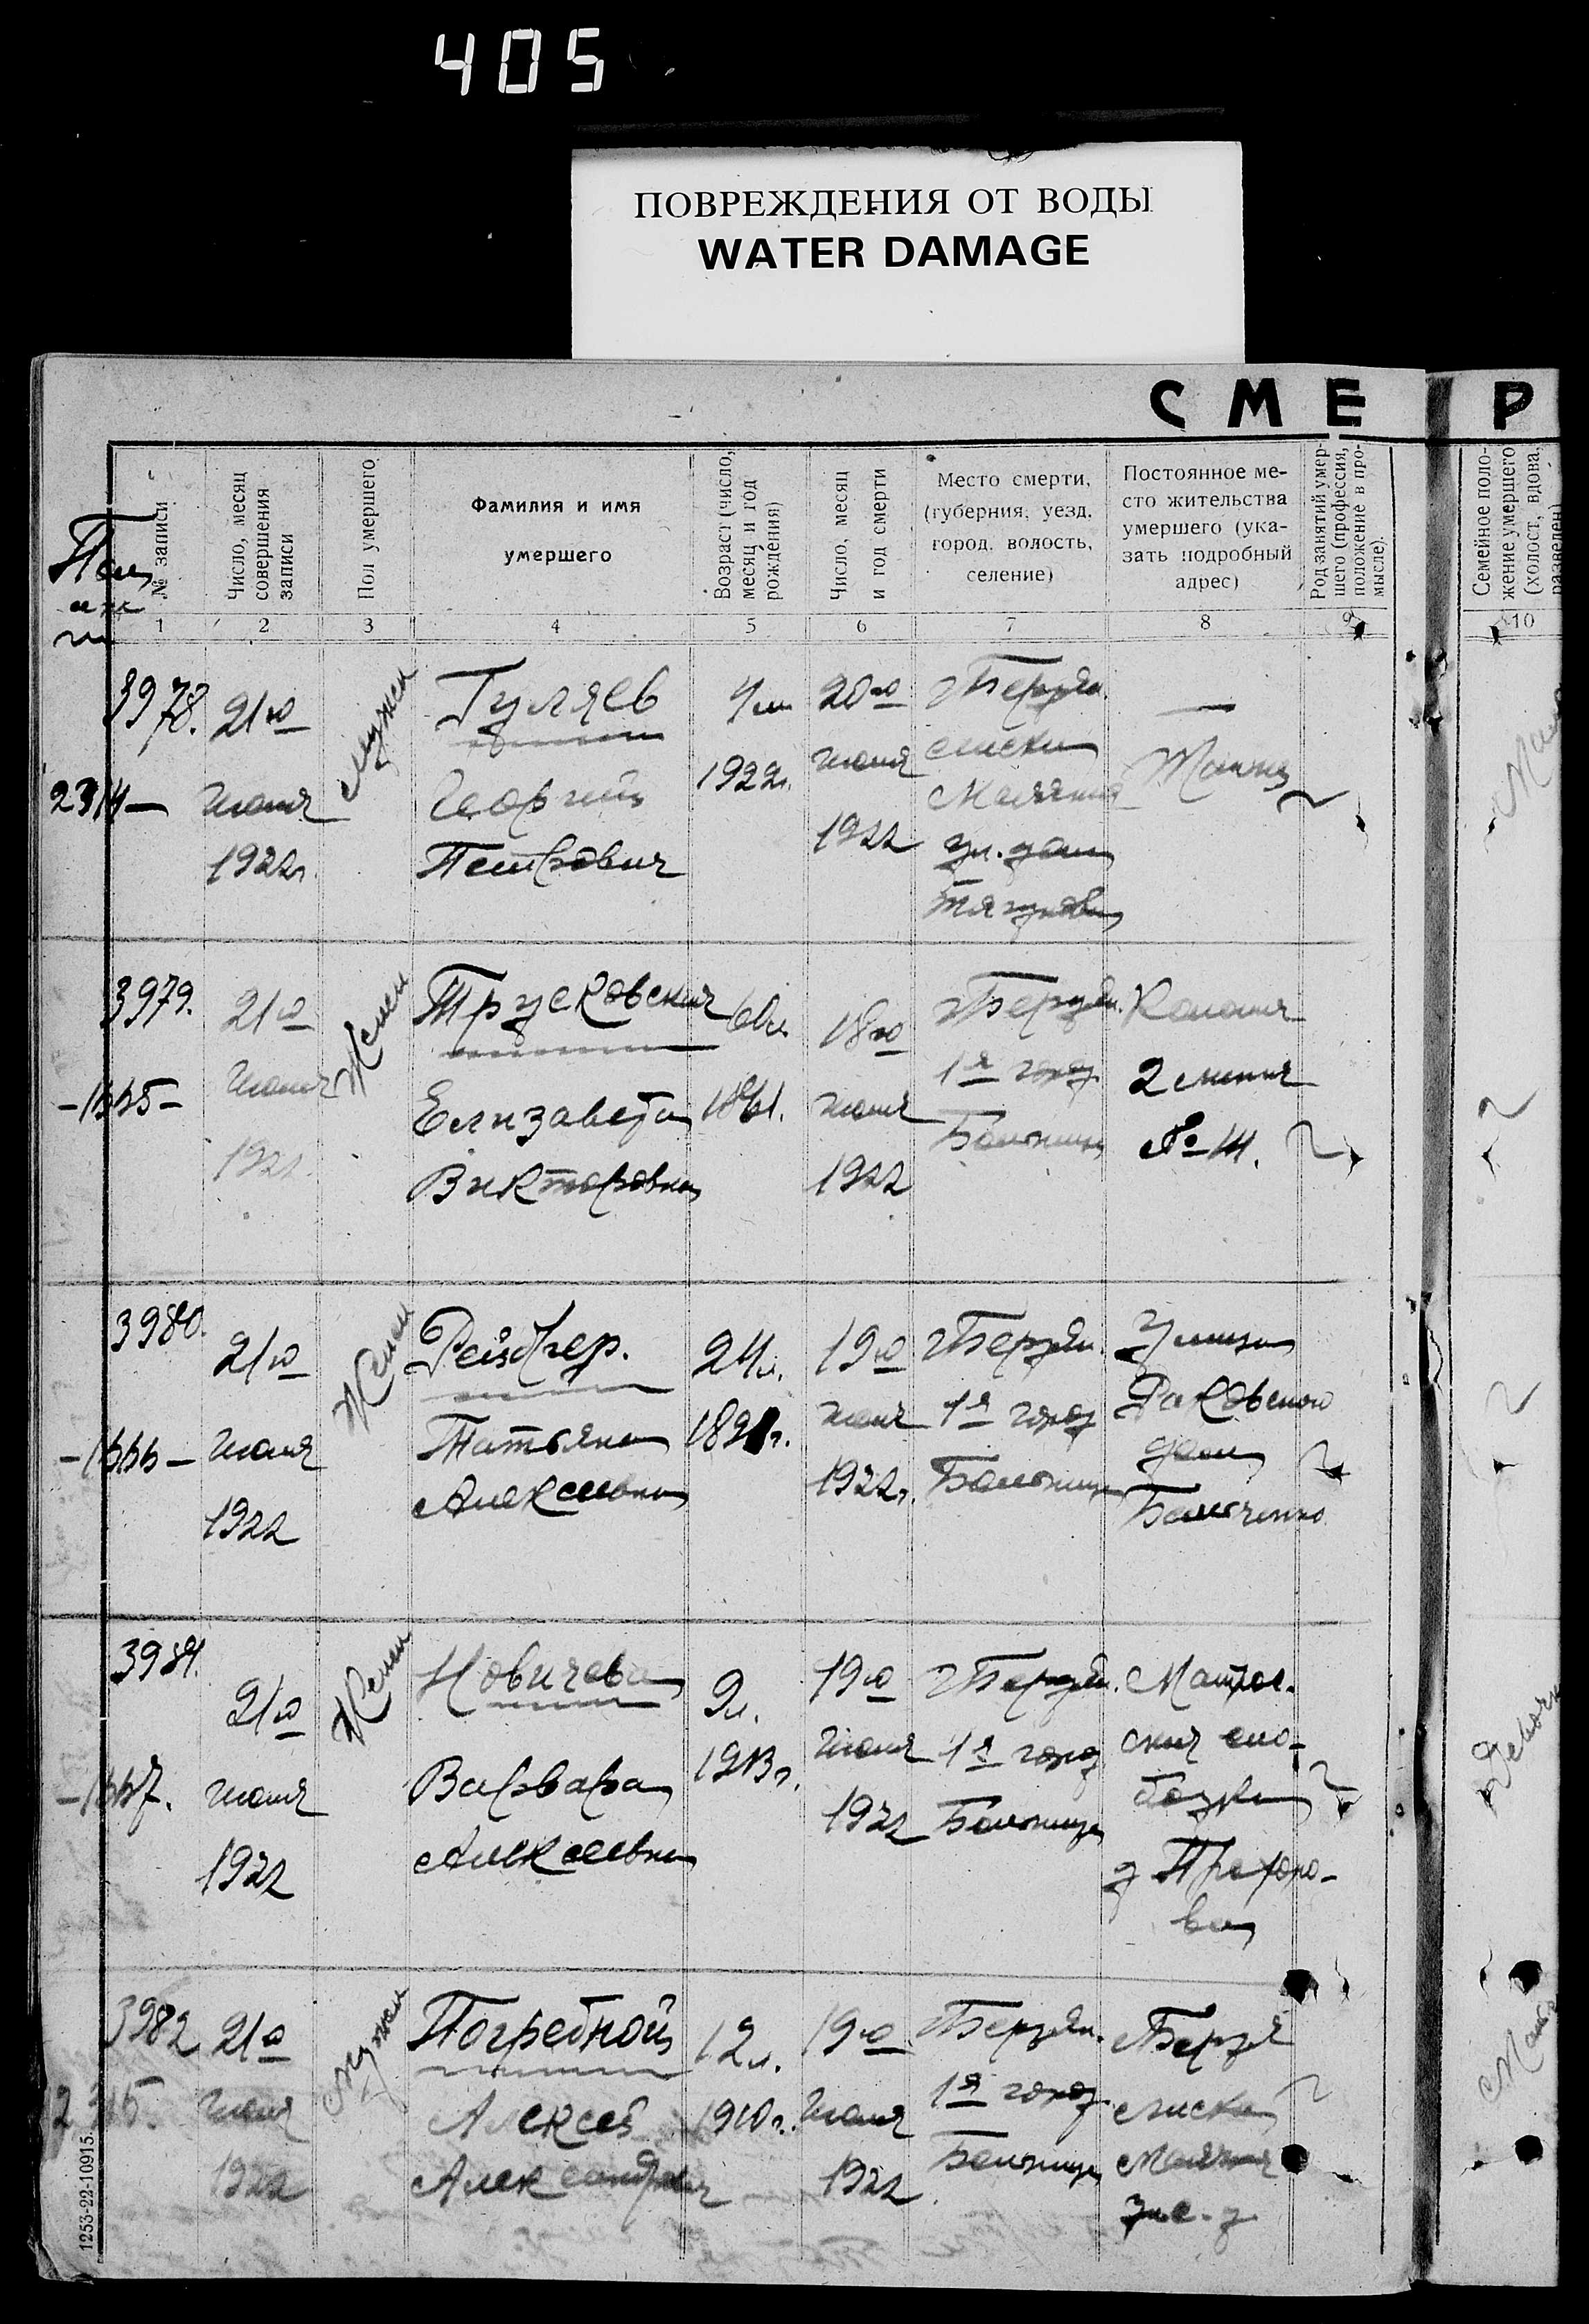 405
ПОВРЕЖДЕНИЯ ОТ ВОДЫ
WATER DAMAGE
СМЕ
Р
№ записи
Число, месяц
совершения
записи
Пол умершего
Фамилия и имя
умершего
Возраст (число,
месяц и год
рождения)
Число, месяц
и год смерти
Место смерти,
(губерния, уезд,
город, волость,
селение)
Постоянное ме-
сто жительства
умершего (ука-
зать подробный
адрес)
Род занятий умер-
шего (профессия,
положение в про-
мысле).
Семейное поло-
жение умершего
(холост, вдова,
разведен)
1 2 3 4 5 6 7 8 9 10
3978.
21го
июня
1922г.
Мужск
Гуляев
Георгий
Петрович
1922г.
20го
июня
1922
г Бердян.
Лиски
ул. дом
3979.
21го
июня
1922.
Женск
Трусковская
Елизавета
Викторовна
1861.
18го
июня
1922
г Бердян.
1я город.
Больница
Колония
2 линия
3980.
21го
июня
1922
Женск
Рейхер.
Татьяна
Алексеевна
24л.
19го
июня
1922г.
г Бердян.
1я город
Больница
Улица
Раковского
дом
3981.
21го
июня
1922
Женск
Новичева
Варвара
Алексеевна
9л.
1913г.
19го
июня
1922
г Бердян.
1я город
Больница
Матрос-
ская сло-
бодка
д Прохоро-
ва
3982
21го
июня
1922
Мужск
Погребной
Алексей
Александрович
12л.
1910г.
19го
июня
1922
г Бердян.
1я город.
Больница
г Бердя
Лиски
1253-22-10915.